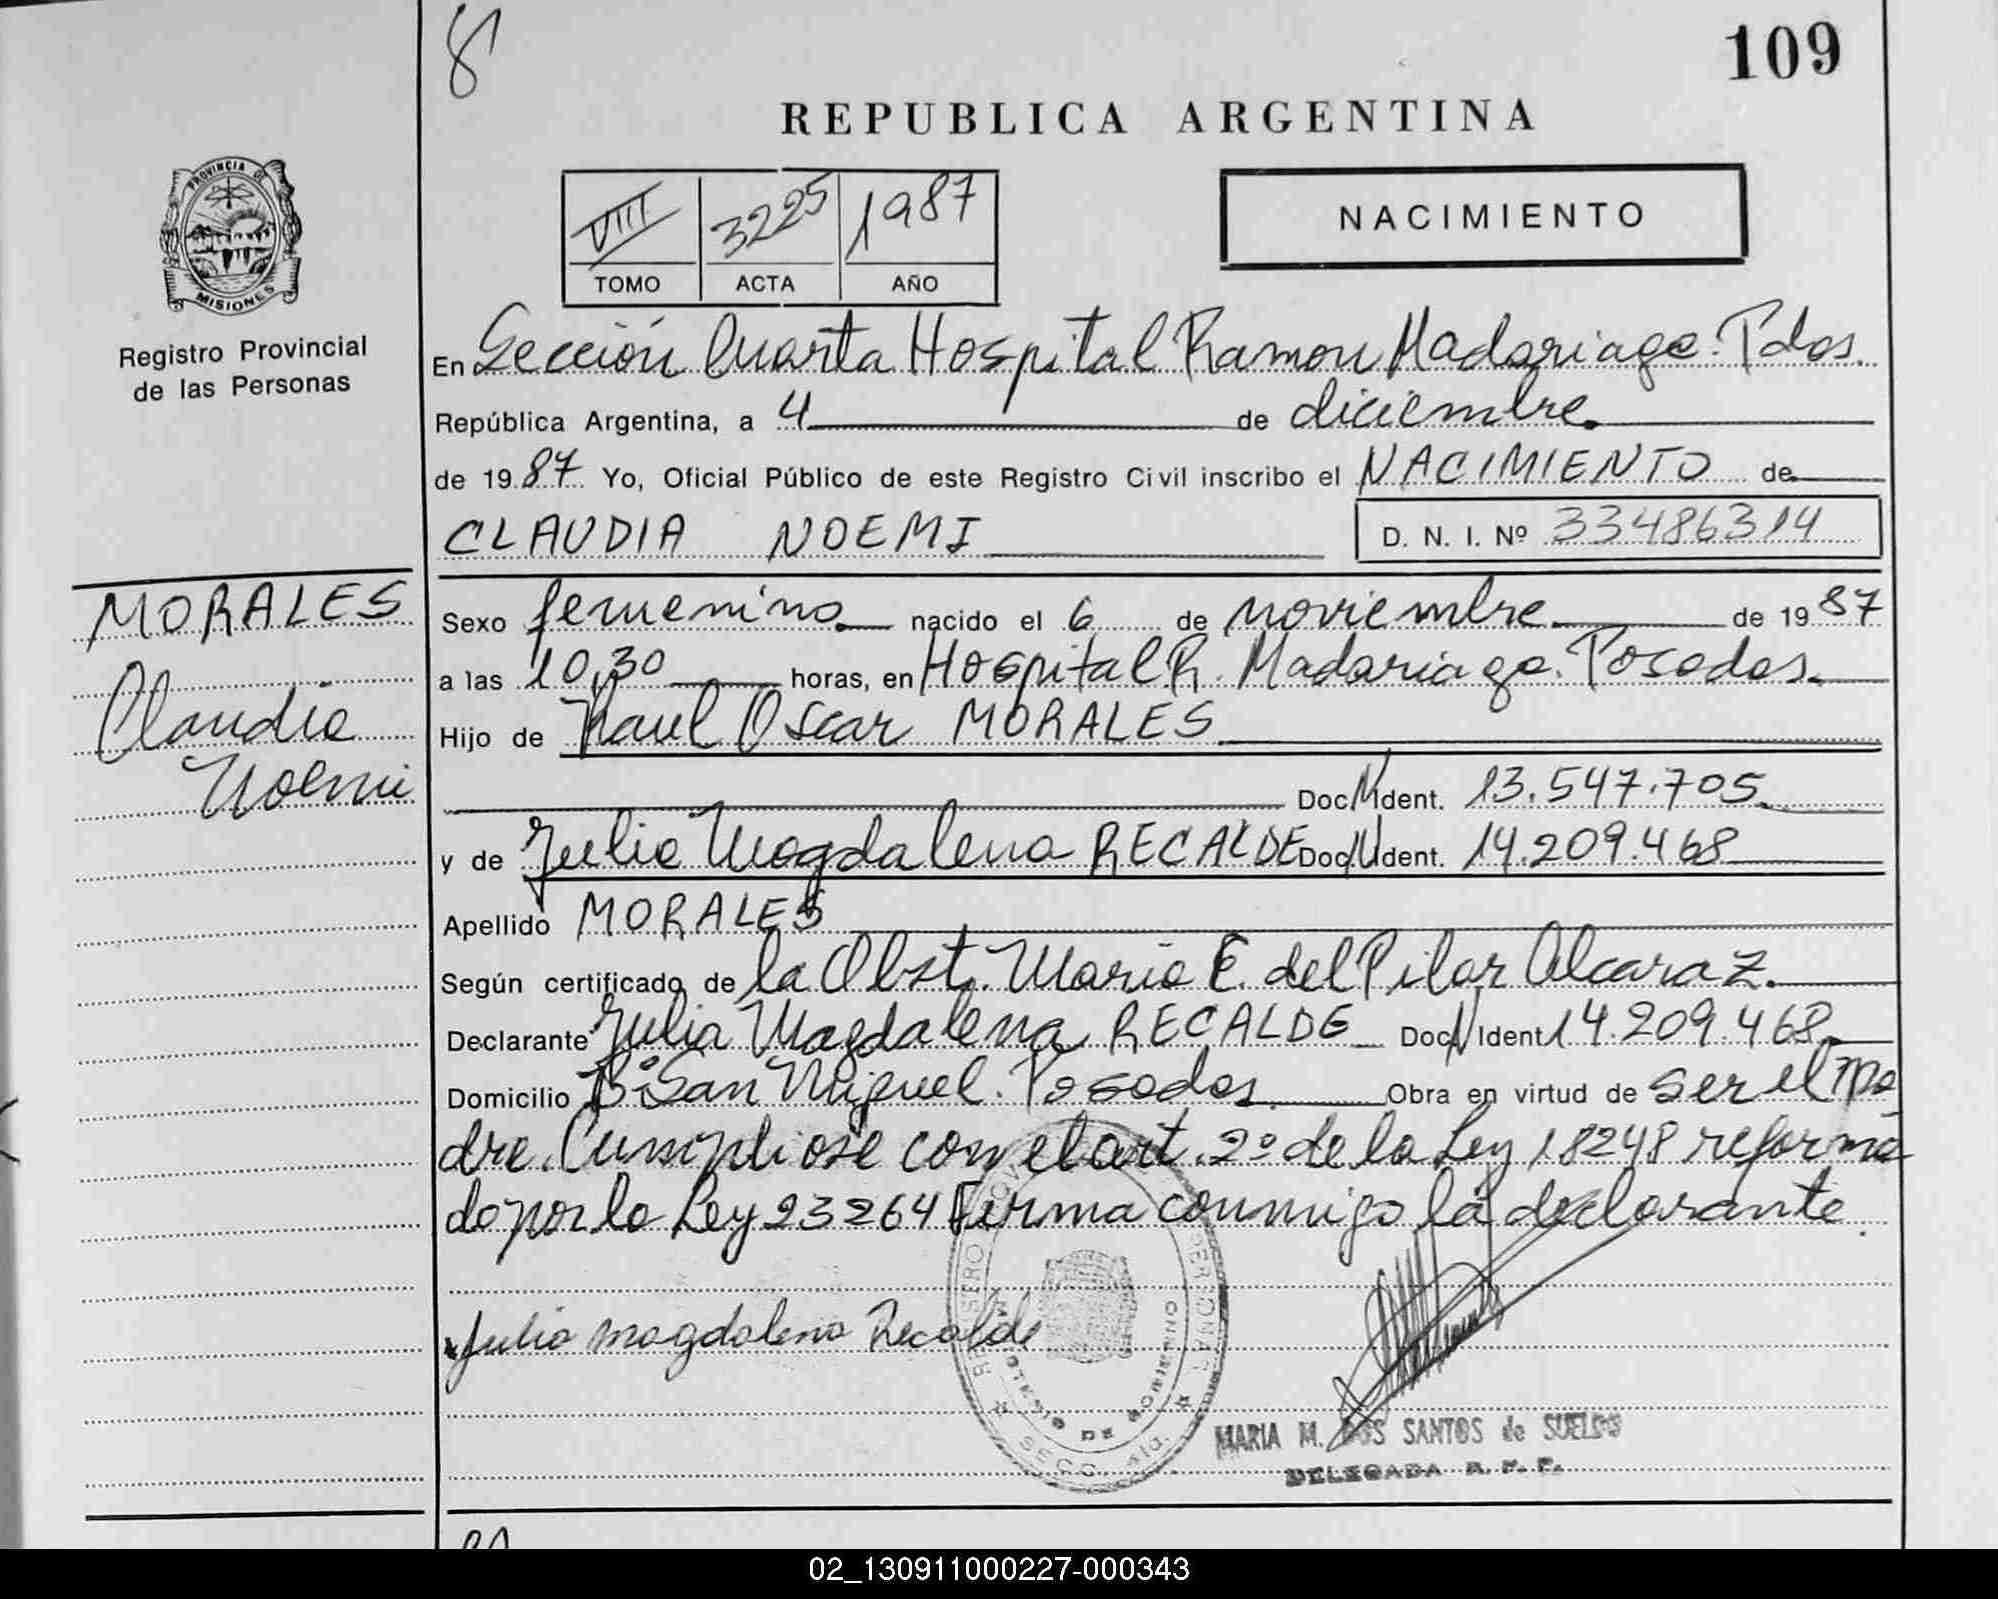 8
109
REPUBLICA ARGENTINA
PROVINCIA DE
MISIONES
Registro Provincial
de las Personas
VIII 3225 1987
TOMO ACTA AÑO
NACIMIENTO
En Sección Cuarta Hospital Ramon Madariaga. Pdas.
República Argentina, a 4 de diciembre
de 1987 Yo, Oficial Público de este Registro Civil inscribo el NACIMIENTO de
CLAUDIA NOEMI
D. N. I. Nº 33486314
MORALES
Claudia
Noemi
Sexo femenino nacido el 6 de noviembre de 1987
a las 10,30 horas, en Hospital R. Madariaga. Posadas.
Hijo de Raul Oscar MORALES
Doc. Ident. 13.547.705
y de Julia Magdalena RECALDE Doc. Ident. 14.209.468
Apellido MORALES
Según certificado de la Obst. Maria E. del Pilar Alcaraz.
Declarante Julia Magdalena RECALDE Doc. Ident 14.209.468
Domicilio Bº San Miguel. Posadas. Obra en virtud de ser el ma
dre. Cumpliose con el art. 2º de la Ley 18248 reforma
do por la Ley 23264 Firma conmigo la declarante.
Julia magdalena Recalde
MARIA M. DOS SANTOS de SUELDO
DELEGADA R. P. P.
02_130911000227-000343